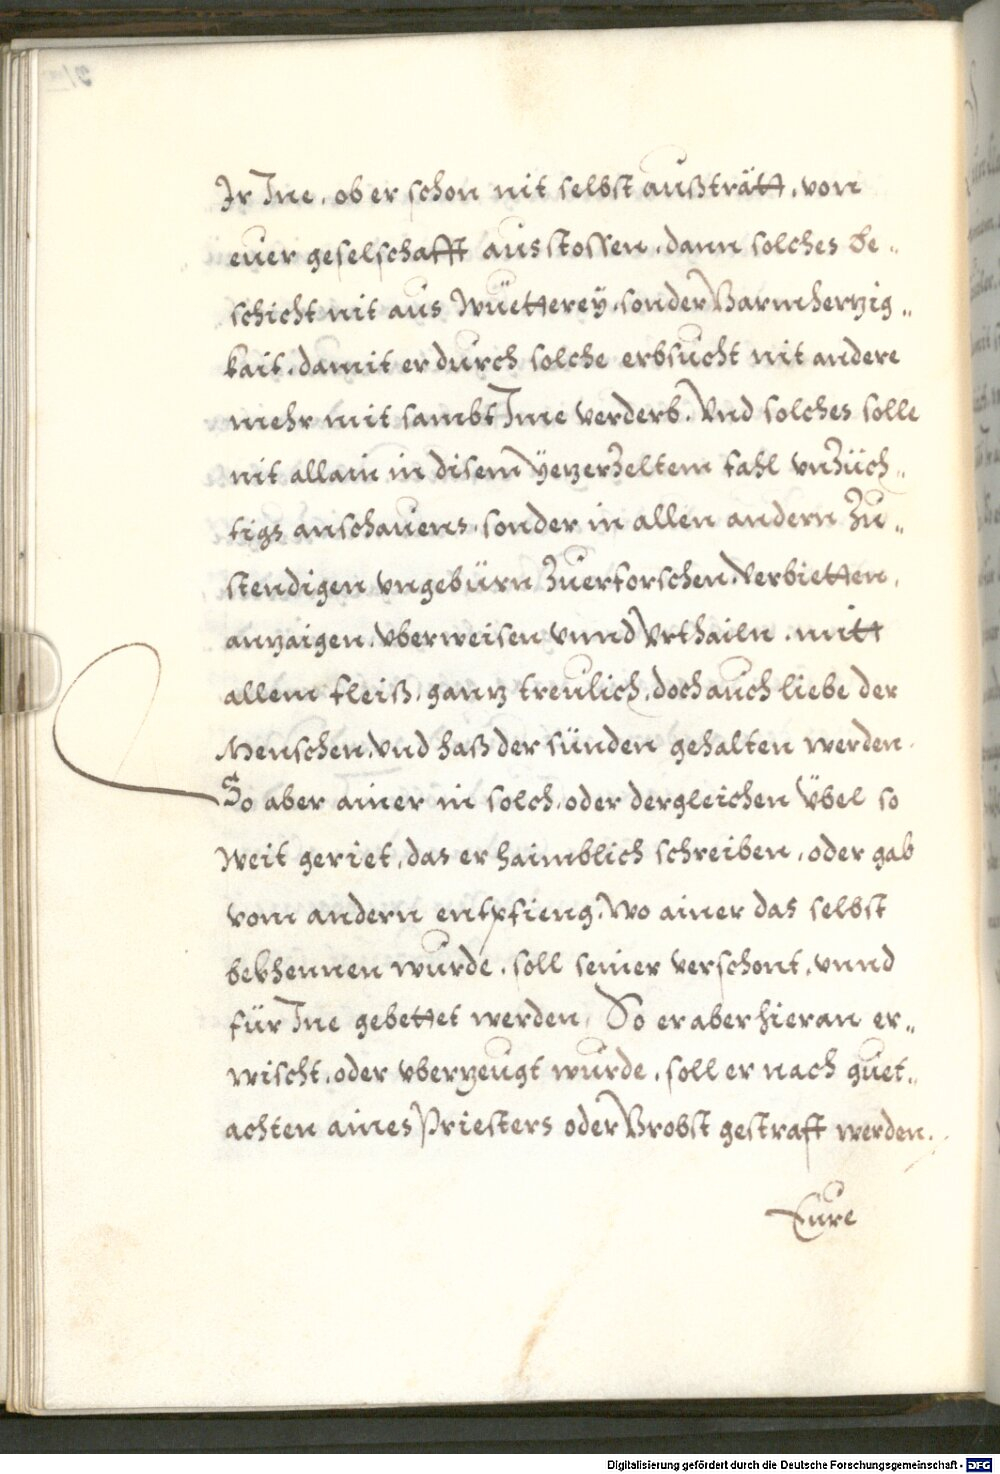 Ir Ine, ob er schon nit selbst außträtt, von
euer geselschafft ausstossen, dann solches be„
schicht nit aus Wüetterey, sonder Barmhertzig„
kait, damit er durch solche erbsucht nit andere
mehr mit sambt Ime verderb. Vnd solches solle
nit allain in disem yetzerzeltem fahl vnzüch„
tigs anschauens, sonder in allen andern zu„
stendigen vngebürn zuerforschen, Verbietten,
anzaigen, vberweisen vnnd Vrthailn, mitt
allem fleiß, gantz treulich, doch auch liebe der
Menschen, Vnd haß der sünden gehalten werden.
So aber ainer in solch, oder dergleichen Übel so
Weit geriet, das er haimblich schreiben, oder gab
vom andern entpfieng, Wo ainer das selbst
bekhennen wurde, soll seiner verschont, vnnd
für Ine gebettet werden, So er aber hieran er„
wischt, oder vberzeugt wurde, soll er nach guet„
achten aines Priesters oder Brobst gestrafft werden.
Eure
Digitalisierung gefördert durch die Deutsche Forschungsgemeinschaft - DFG